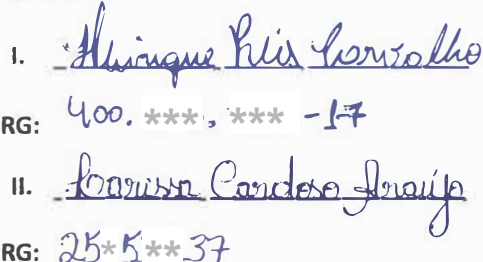 I. Henrique Reis Carvalho
RG: 400. ***. *** -17
II. Larissa Cardoso Araújo
RG: 25*5**37